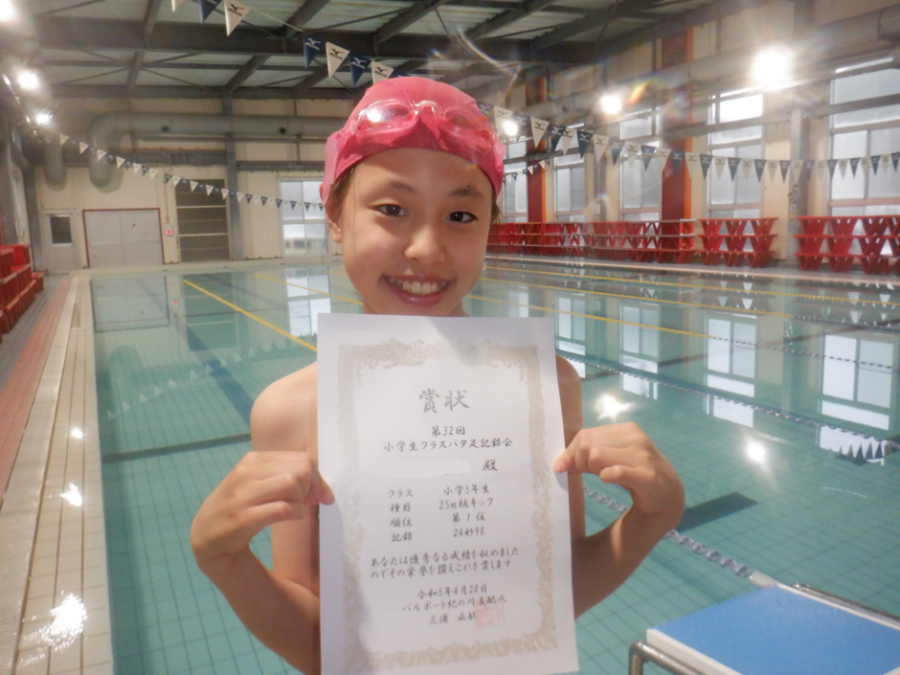 賞状
第32回
小学生クラスバタ足記録会
殿
クラス 小学5年生
種目 25m板キック
順位 第1位
記録 24秒98
あなたは優秀なる成績を収めました
のでその栄誉を讃えこれを賞します
令和5年4月28日
パルポート紀の川支配人
三浦